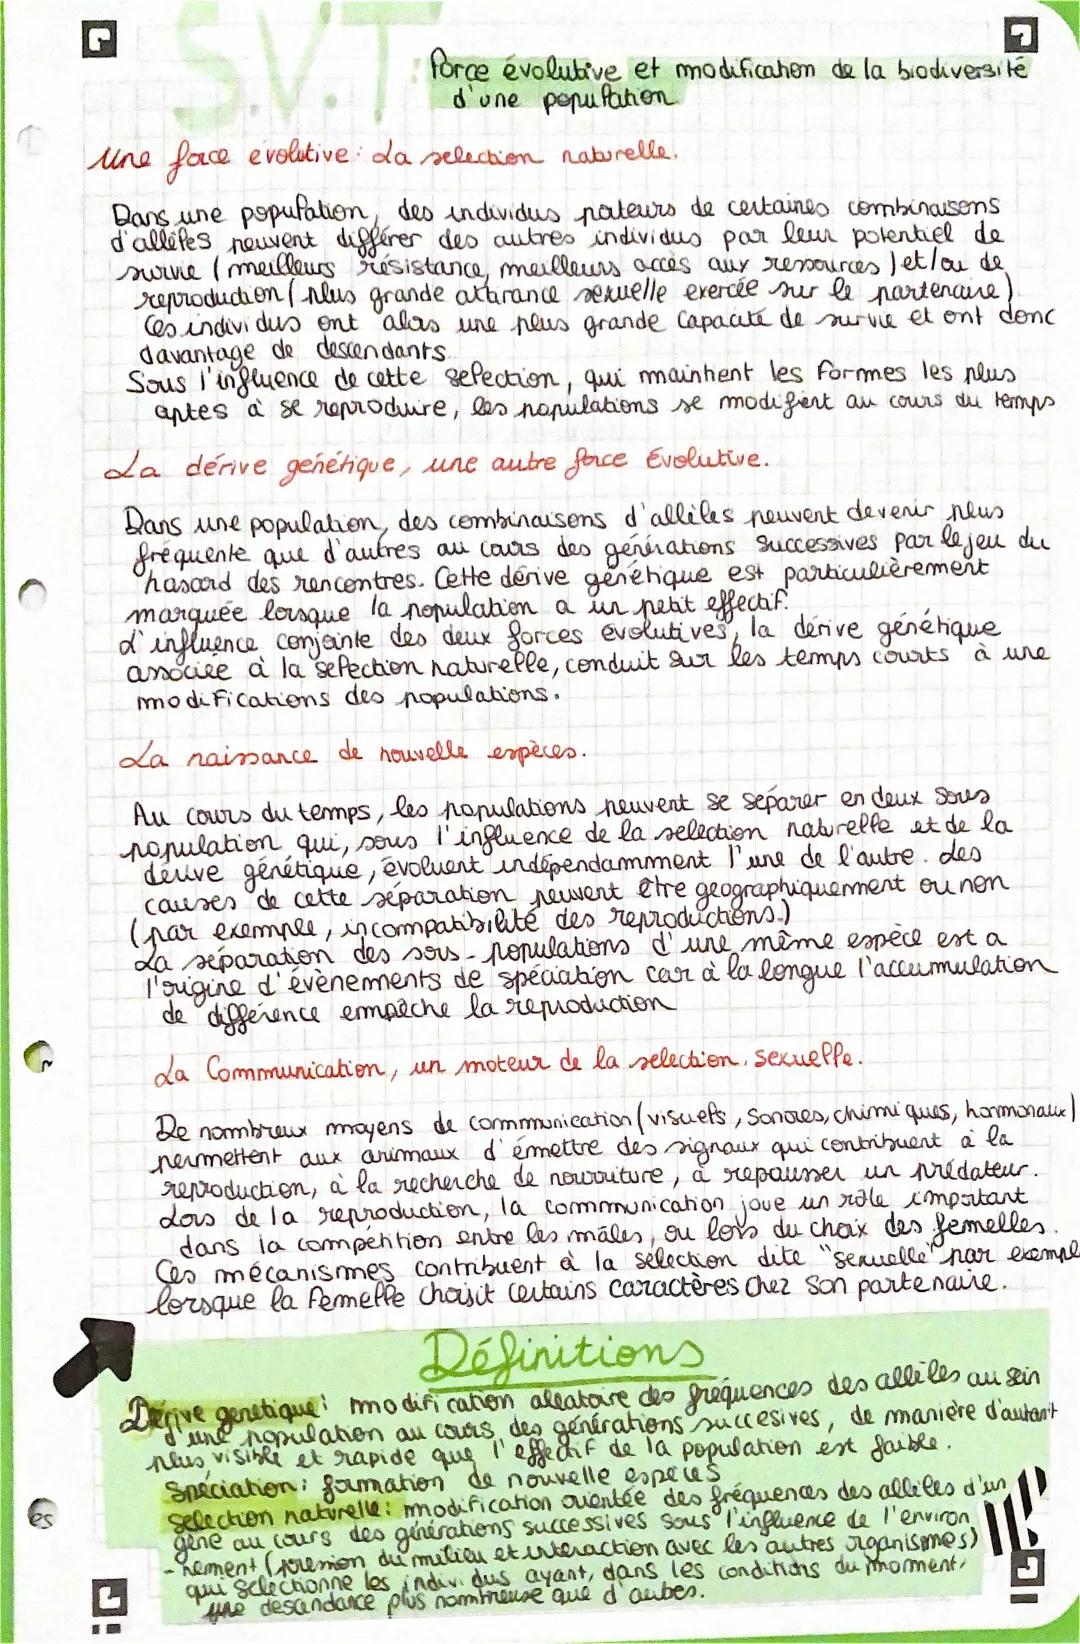 S.V.T:
Force évolutive et modification de la biodiversité
d'une population
Une force évolutive: La selection naturelle.
Dans une population, des individus poteurs de certaines combinaisons
d'allèles peuvent différer des autres individus par leur potentiel de
survie (meilleurs résistance, meilleurs accès aux ressources) et/ou de
reproduction (plus grande attirance sexuelle exercée sur le partenaire).
Ces individus ont alors une plus grande capacité de survie et ont donc
davantage de descendants.
Sous l'influence de cette selection, qui maintient les formes les plus
aptes à se reproduire, les populations se modifient au cours du temps
La dérive génétique, une autre force Évolutive.
Dans une population, des combinaisons d'allèles peuvent devenir plus
fréquente que d'autres au cours des générations successives par le jeu du
hasard des rencontres. Cette dérive génétique est particulièrement
marquée lorsque la population a un petit effectif.
L'influence conjointe des deux forces évolutives, la dérive génétique
associée à la selection naturelle, conduit sur les temps courts à une
modifications des populations.
La naissance de nouvelle espèces.
Au cours du temps, les populations peuvent se séparer en deux sous
population qui, sous l'influence de la selection naturelle et de la
dérive génétique, évoluent indépendammment l'une de l'autre. Les
causes de cette séparation peuvent être geographiquement ou non
(par exemple, incompatibilité des reproductions.)
La séparation des sous-populations d'une même espèce est a
l'origine d'évènements de spéciation car à la longue l'accumulation
de différence empêche la reproduction
La Communication, un moteur de la selection sexuelle.
De nombreux moyens de communication (visuels, Sonores, chimiques, hormonaux)
permettent aux animaux d'émettre des signaux qui contribuent à la
reproduction, à la recherche de nourriture, à repousser un prédateur.
Lors de la reproduction, la communication joue un rôle important
dans la compétition entre les mâles, ou lors du choix des femelles.
Ces mécanismes contribuent à la sélection dite "sexuelle" par exemple
lorsque la femelle choisit certains caractères chez son partenaire.
Définitions
Dérive genetique: modification aléatoire des fréquences des allèles au sein
d'une population au cours des générations succesives, de manière d'autant
plus visible et rapide que l'effectif de la population est faible.
Spéciation: formation de nouvelle espèces
Selection naturelle: modification orientée des fréquences des allèles d'un
gène au cours des générations successives sous l'influence de l'environ
-nement (pression du milieu et interaction avec les autres organismes)
qui sélectionne les individus ayant, dans les conditions du moment,
une descendance plus nombreuse que d'autres.
es